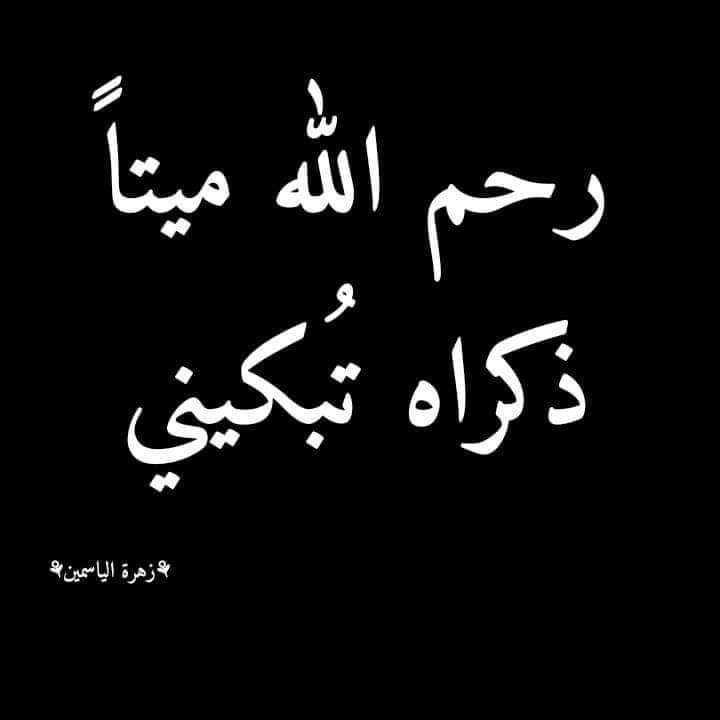 رحم الله ميتاً
ذكراه تُبكيني
زهرة الياسمين